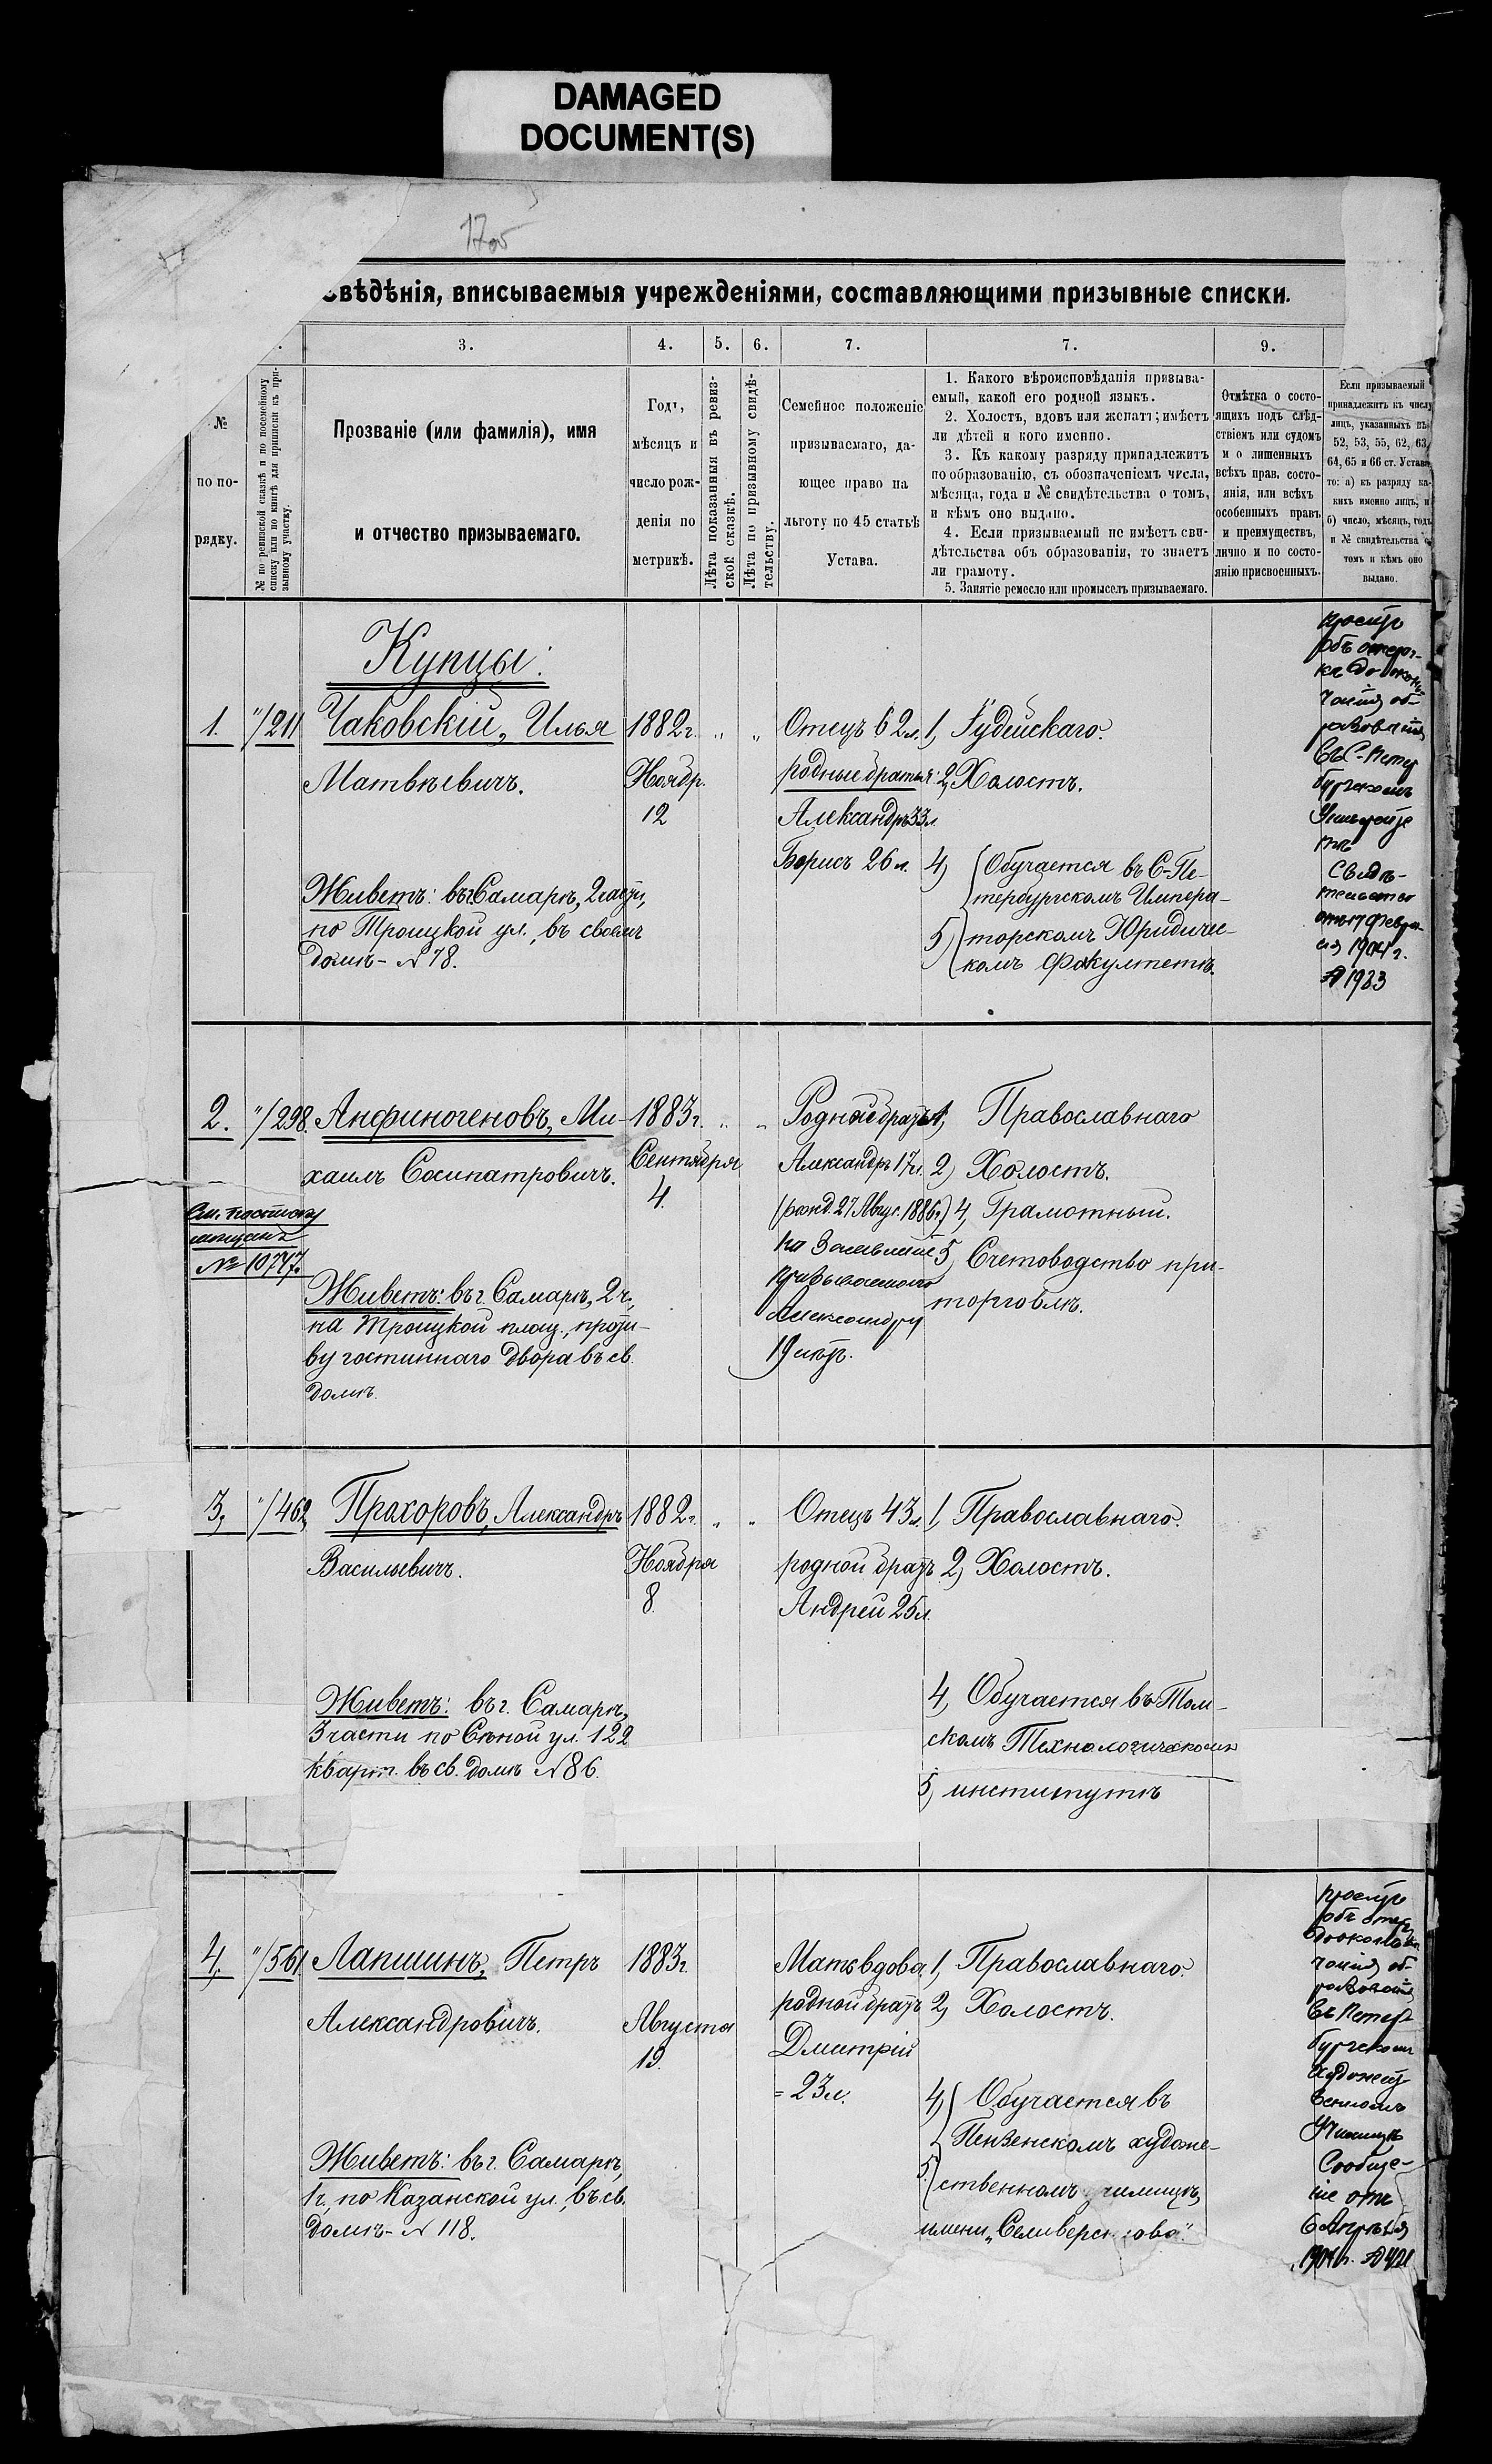 DAMAGED
DOCUMENT(S)
вѣдѣнія, вписываемыя учрежденіями, составляющими призывные списки.
3.
4.
5.
6.
7.
7.
9.
№
по по-
рядку.
№ по ревизской сказкѣ и по посемейному
списку или по книгѣ для приписки къ при-
зывному участку.
Прозваніе (или фамилія), имя
и отчество призываемаго.
Годъ,
мѣсяцъ и
число рож-
денія по
метрикѣ.
Лѣта показанныя въ ревиз-
ской сказкѣ.
Лѣта по призывному свидѣ-
тельству.
Семейное положеніе
призываемаго, да-
ющее право на
льготу по 45 статьѣ
Устава.
1. Какого вѣроисповѣданія призыва-
емый, какой его родной языкъ.
2. Холостъ, вдовъ или женатъ; имѣетъ
ли дѣтей и кого именно.
3. Къ какому разряду принадлежитъ
по образованію, съ обозначеніемъ числа,
мѣсяца, года и № свидѣтельства о томъ,
и кѣмъ оно выдано.
4. Если призываемый не имѣетъ сви-
дѣтельства объ образованіи, то знаетъ
ли грамоту.
5. Занятіе ремесло или промыселъ призываемаго.
Отмѣтка о состо-
ящихъ подъ слѣд-
ствіемъ или судомъ
и о лишенныхъ
всѣхъ прав. состо-
янія, или всѣхъ
особенныхъ правъ
и преимуществъ,
лично и по состо-
янію присвоенныхъ.
Если призываемый
принадлежитъ къ числу
лицъ, указанныхъ въ
52, 53, 55, 62, 63,
64, 65 и 66 ст. Устава,
то: а) къ разряду ка-
кихъ именно лицъ, и
б) число, мѣсяцъ, годъ
и № свидѣтельства о
томъ и кѣмъ оно
выдано.
Купцы:
1.
"/211
Чаковскій, Илья
Матвѣевичъ.
Живетъ: въ г. Самарѣ, 2 части,
по Троицкой ул., въ своемъ
домѣ - № 78.
1882 г.
Ноябр.
12
"
"
Отецъ 62 л.
родные братья:
Александръ 33 л.
Борисъ 26 л.
1, Іудейскаго.
2, Холостъ.
4) Обучается въ С-Пе-
тербургскомъ Импера-
5) торскомъ Юридичес-
комъ Факультетѣ.
проситъ
объ отсроч-
кѣ до окон-
чанія об-
разованія
въ С-Петер
бургскомъ
Университе
тѣ
Свидѣ-
тельство
отъ 17 Февра-
ля 1904 г.
№ 1983
2.
"/298.
Анфиногеновъ, Ми-
хаилъ Сосипатровичъ.
№ 10747.
Живетъ: въ г. Самарѣ, 2 ч.,
на Троицкой площ., проти-
ву гостиннаго двора въ св.
домѣ.
1883 г.
Сентября
4.
"
"
Родной братъ
Александръ 17 л.
(рожд. 27 Авгус. 1886 г.)
по заявленію
призываемаго
Александру
19 лѣтъ.
1, Православнаго
2) Холостъ.
4, Грамотный.
5, Счетоводство при
торговлѣ.
3,
"/462
Прохоровъ, Александръ
Васильевичъ.
Живетъ: въ г. Самарѣ,
3 части по Сѣнной ул. 122
кварт. въ св. домѣ № 86.
1882 г.
Ноября
8.
"
"
Отецъ 43 л.
родной братъ
Андрей 25 л.
1, Православнаго.
2, Холостъ.
4, Обучается въ Том-
скомъ Технологическомъ
5, институтѣ
4,
"/561
Лапшинъ, Петръ
Александровичъ.
Живетъ: въ г. Самарѣ,
1 ч., по Казанской ул., въ св.
домѣ - № 118.
1883 г.
Августа
19.
Мать вдова,
родной братъ
Дмитрій
= 23 л.
1, Православнаго.
2, Холостъ.
4, Обучается въ
Пензенскомъ художе-
5, ственномъ училищѣ,
имени „Селиверстова".
проситъ
объ отср.
до окон
чанія об-
разованія
въ Петер
бургскомъ
художест
венномъ
Училищѣ
Сообще-
ніе отъ
6 Апрѣля
1904 г. № 421